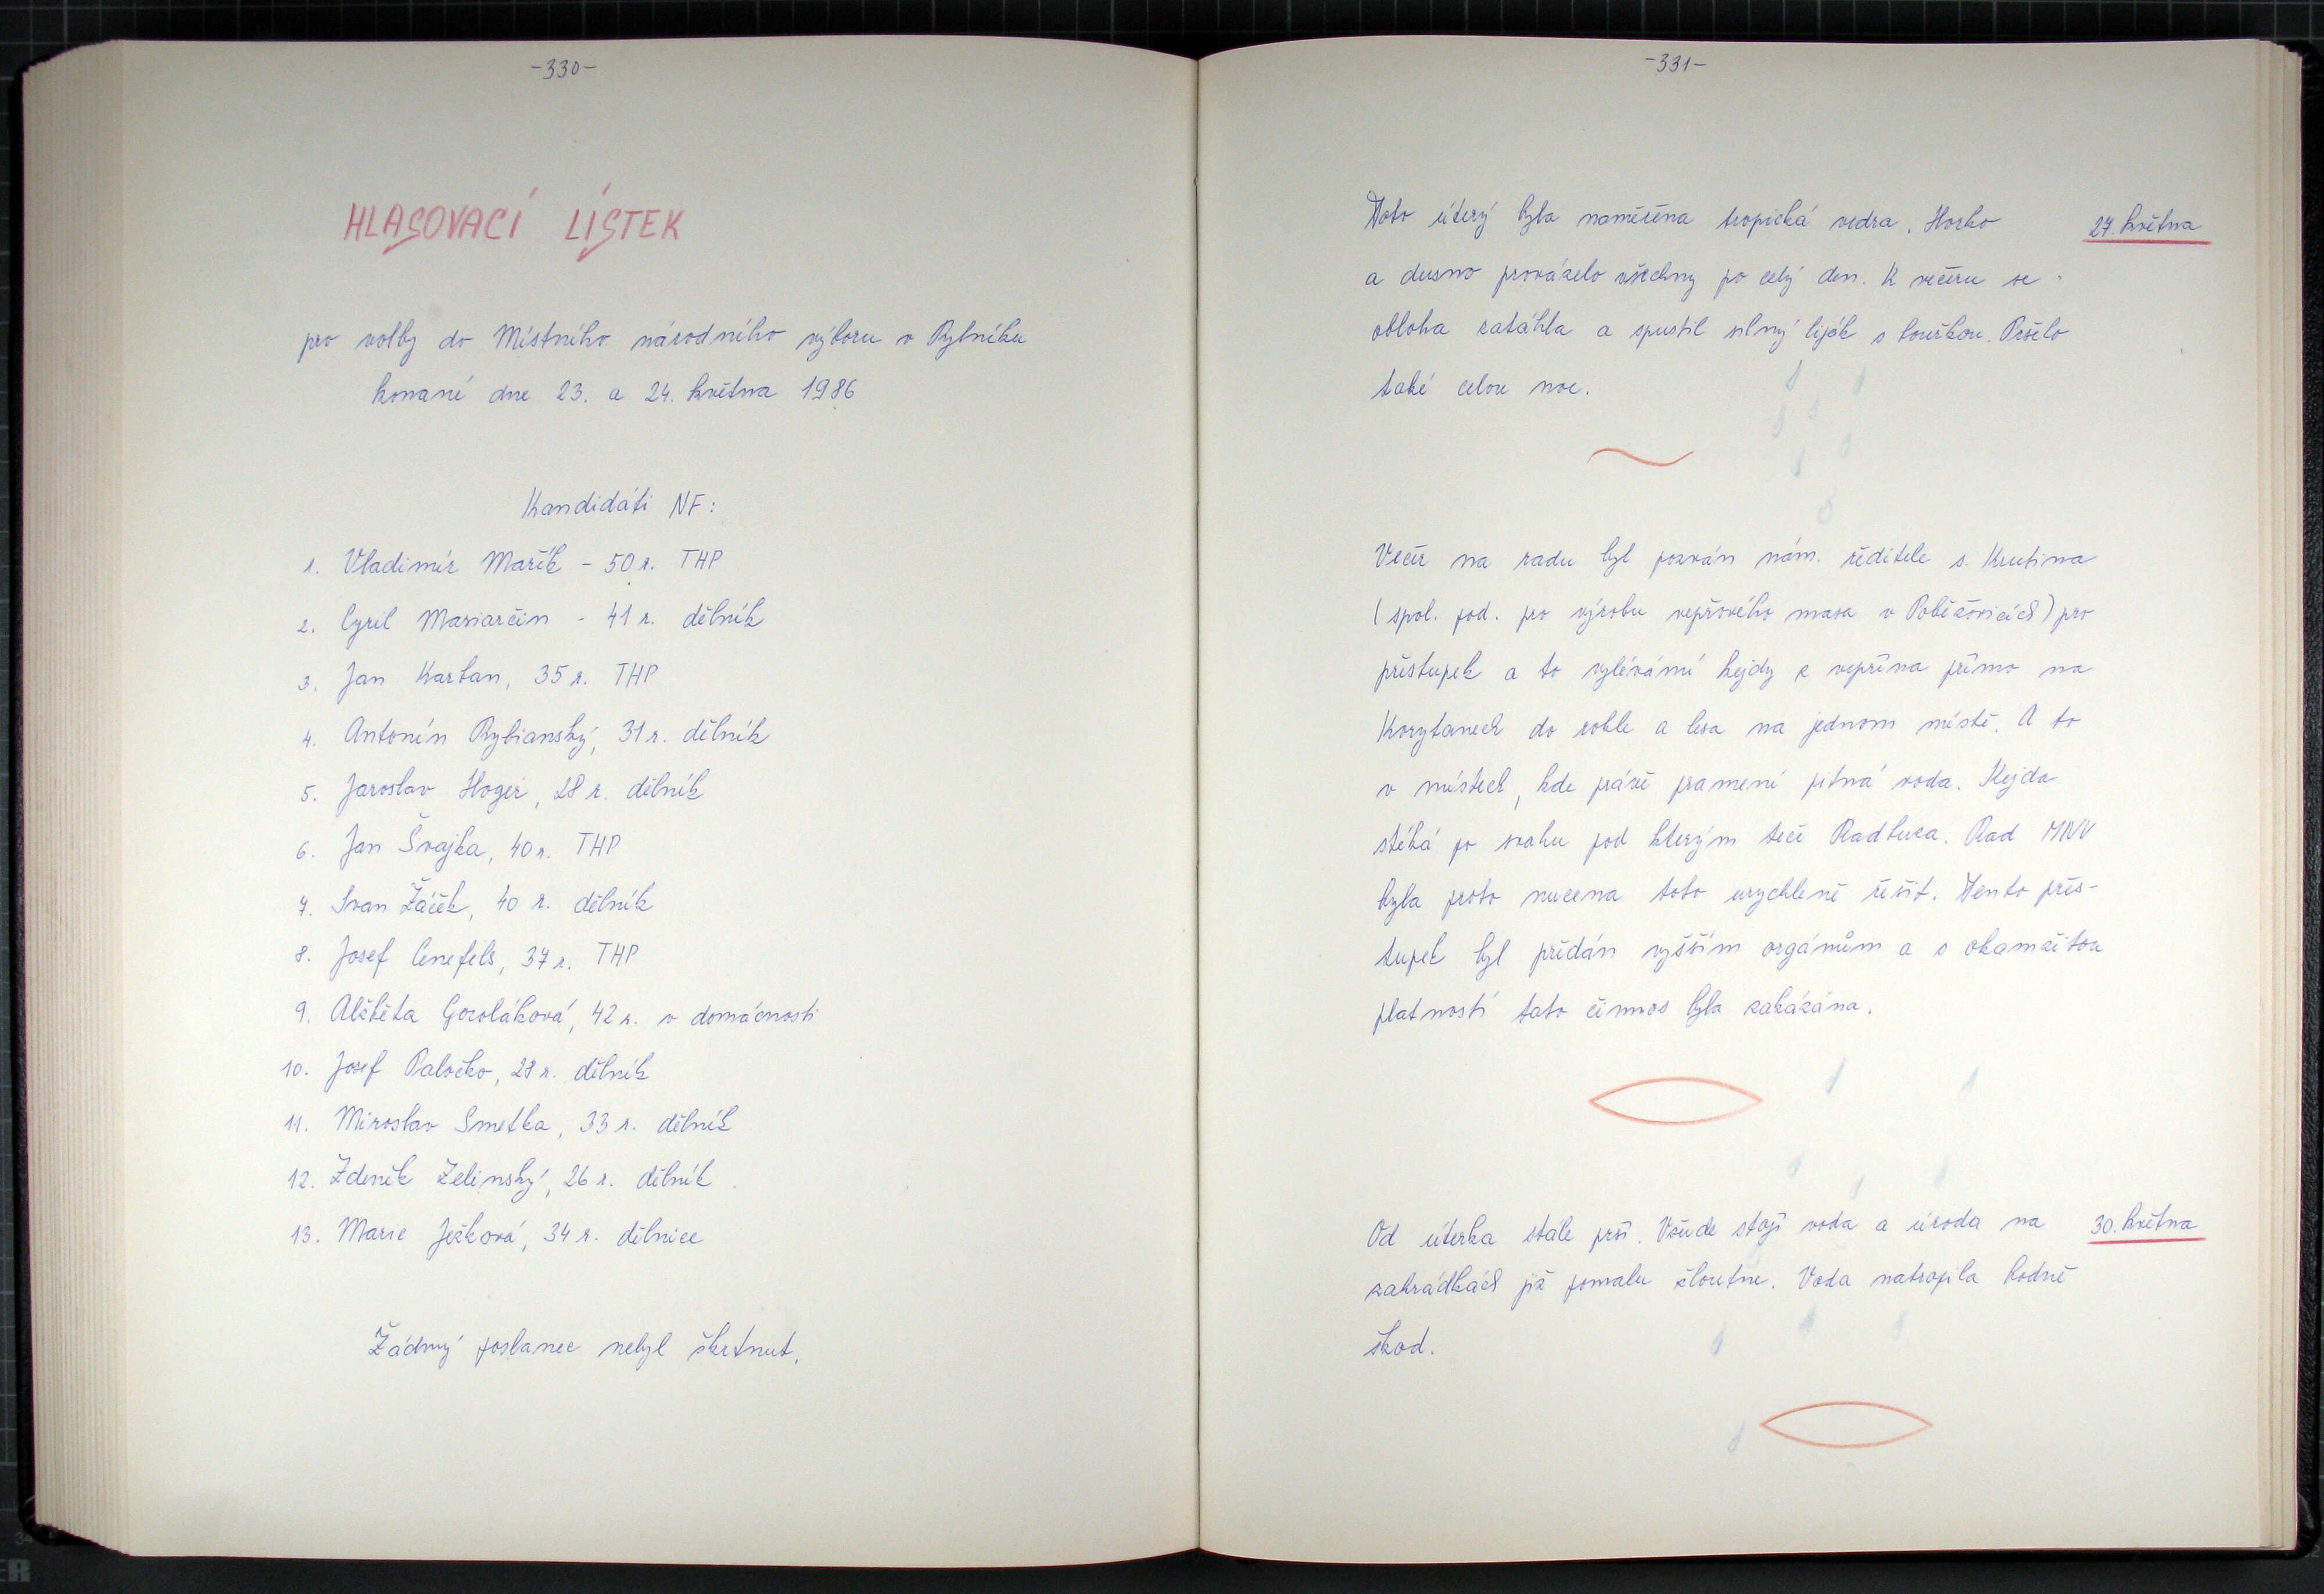 -330-
HLASOVACÍ LÍSTEK
pro volby do Místního národního výboru v Rybníku
konané dne 23. a 24. května 1986
Kandidáti NF:
1. Vladimír Mařík - 50 r. THP
2. Cyril Mariarčin - 41 r. dělník
3. Jan Karban, 35 r. THP
4. Antonín Rybianský, 31 r. dělník
5. Jaroslav Hoger, 28 r. dělník
6. Jan Švajka, 40 r. THP
7. Ivan Žáček, 40 r. dělník
8. Josef Cenefels, 37 r. THP
9. Alžběta Goroláková, 42 r. v domácnosti
10. Josef Paločko, 28 r. dělník
11. Miroslav Smetka, 33 r. dělník
12. Zdeněk Zelinský, 26 r. dělník
13. Marie Ježková, 34 r. dělnice
Žádný poslanec nebyl škrtnut.
-331-
Toto úterý byla naměřena tropická vedra. Horko 27. května
a dusno provázelo všechny po celý den. K večeru se
obloha zatáhla a spustil silný liják s bouřkou. Pršelo
také celou noc.
Večer na radu byl pozván nám. ředitele s. Krutina
(spol. pod. pro výrobu vepřového masa v Poběžovicích) pro
přestupek a to vylévání kejdy z vepřína přímo na
Korytanech do roble a lesa na jednom místě. A to
v místech, kde právě pramení pitná voda. Kejda
stéká po svahu pod kterým teče Radbuza. Rad MNV
byla proto nucena toto urychleně řešit. Tento přes-
tupek byl předán vyšším orgánům a s okamžitou
platností tato činnos byla zakázána.
Od úterka stále prší. Všude stojí voda a úroda na 30. května
zahrádkách již pomalu žloutne. Voda natropila hodně
škod.